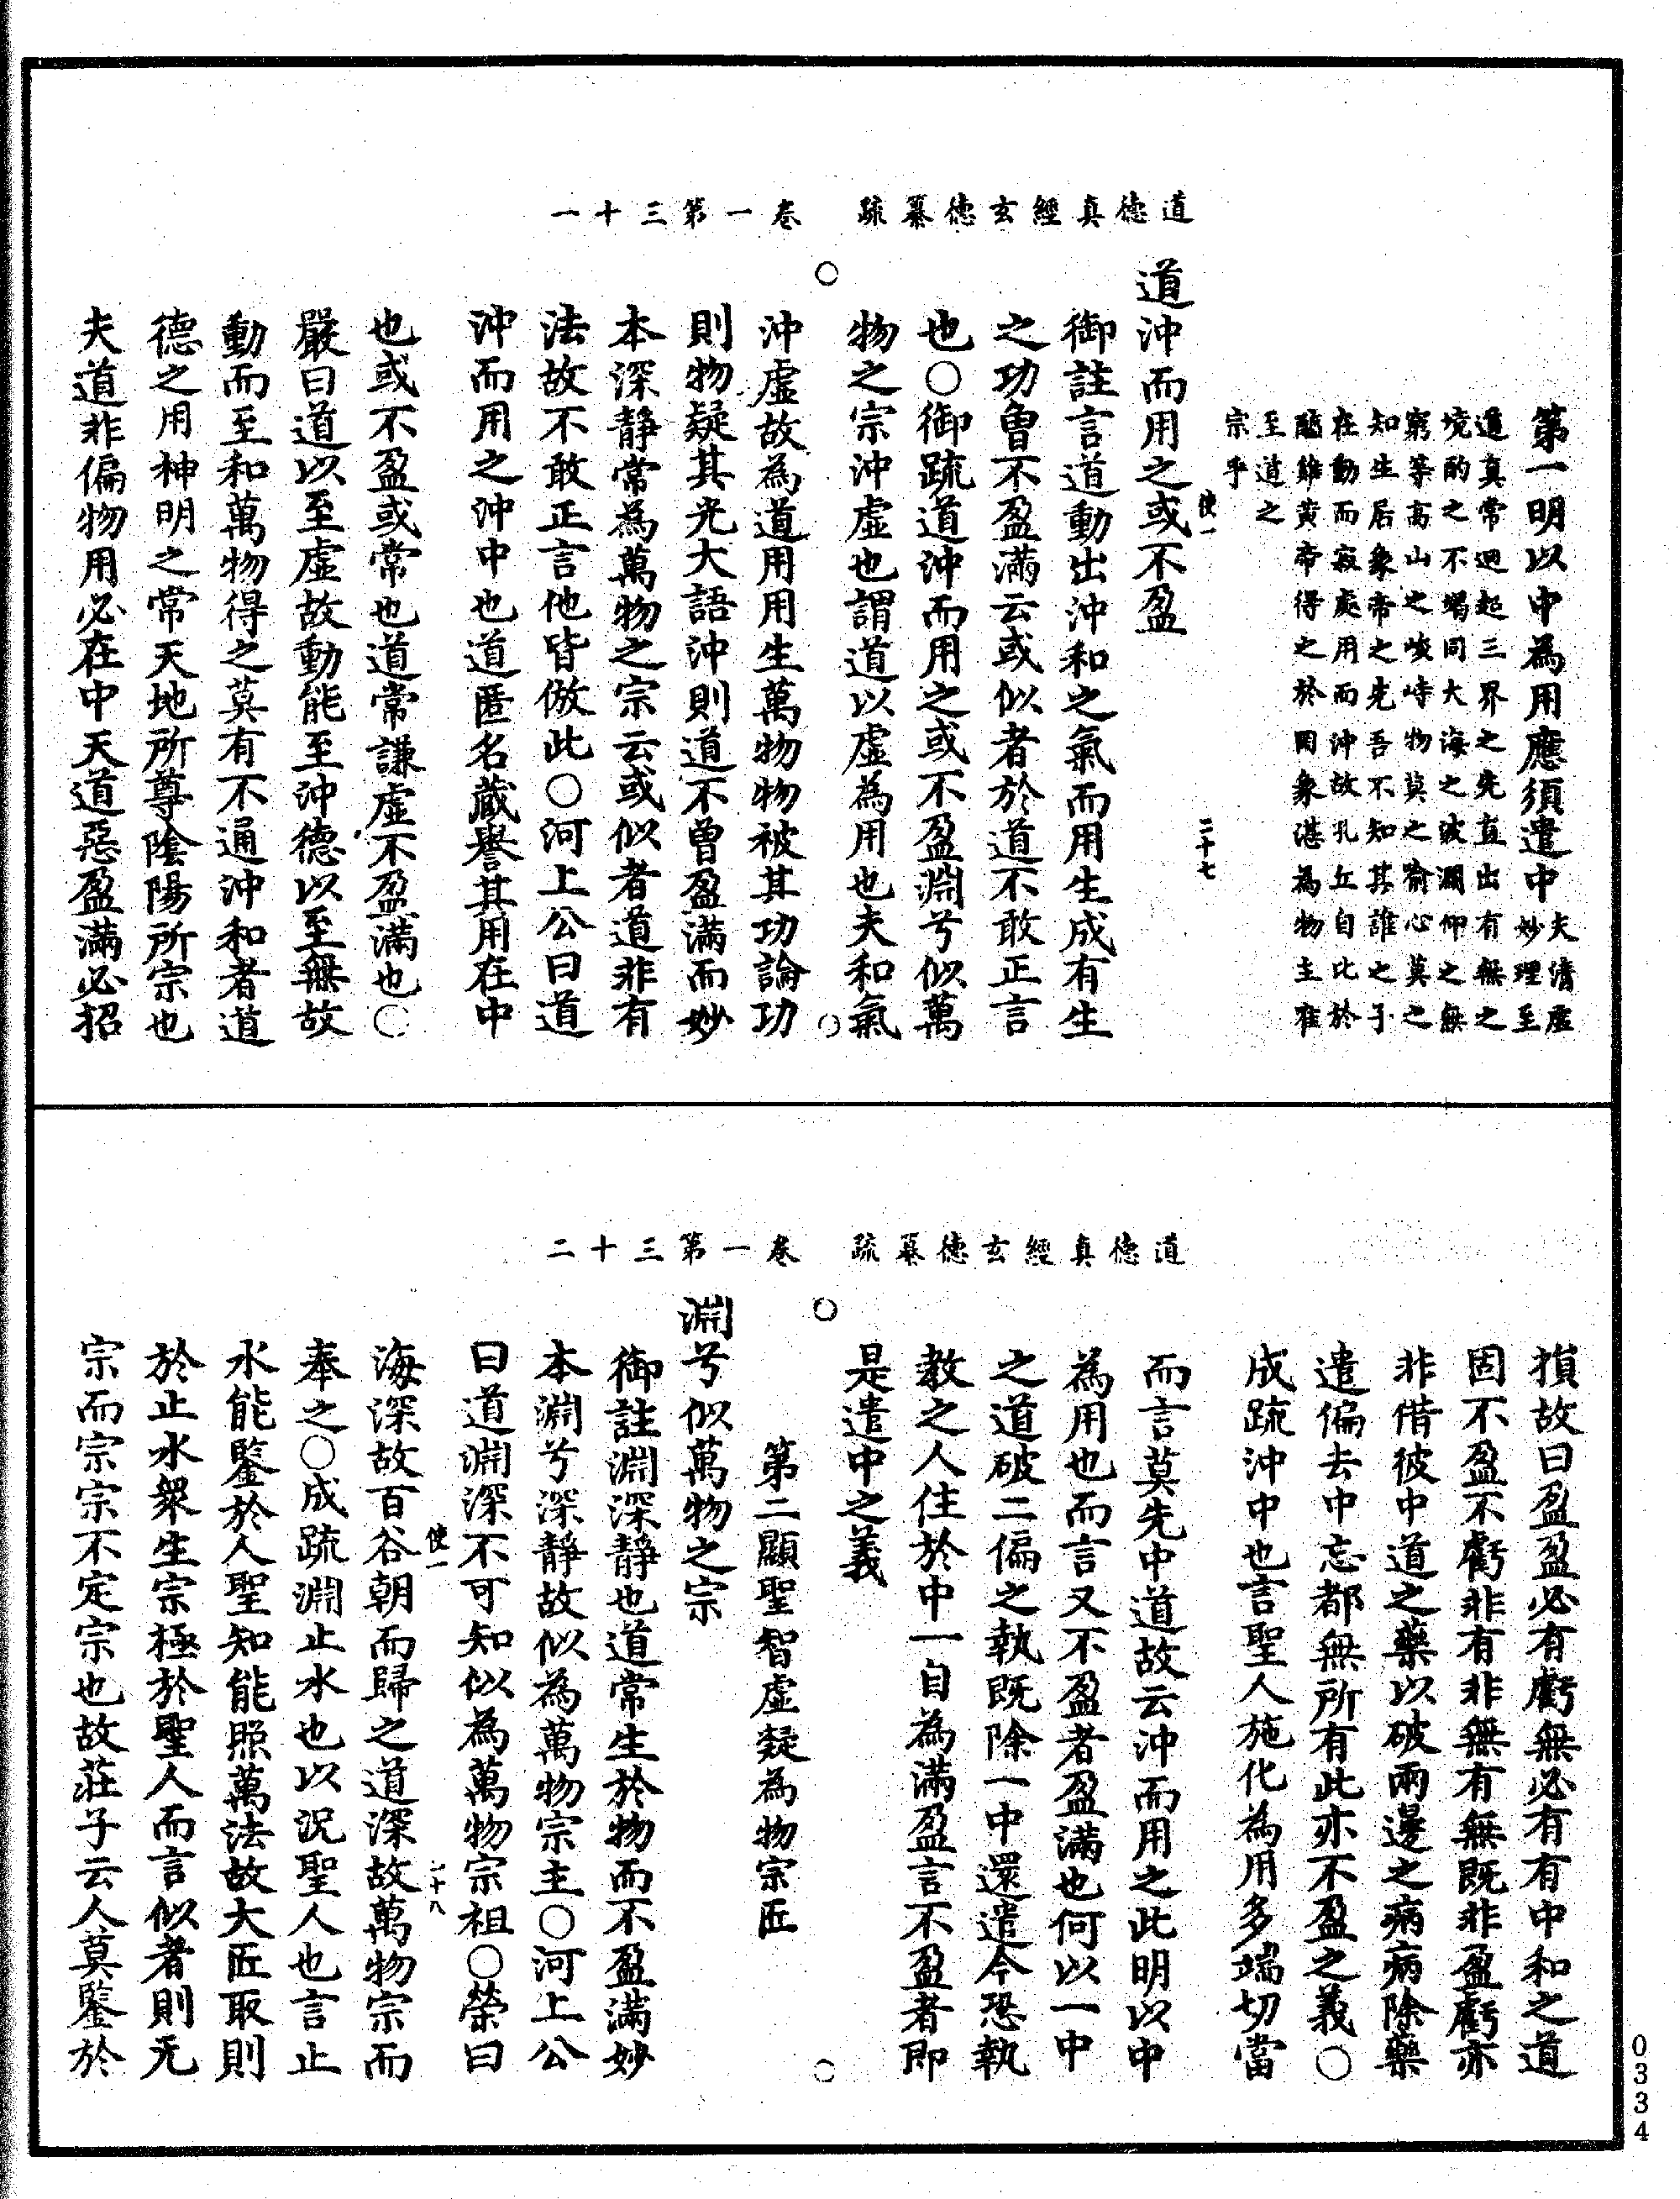 道德真經玄德纂疏　卷一第三十一
第一明以中為用應須遣中夫清虛妙理至
道真常迥超三界之先直出有無之
境酌之不竭同大海之波瀾仰之無
窮等高山之峻峙物莫之喻心莫之
知生居象帝之先吾不知其誰之子
在動而寂處用而沖故孔丘自比於
醯雞黃帝得之於罔象湛為物主
至道之
宗乎
使一　二十七
道沖而用之或不盈
御註言道動出沖和之氣而用生成有生
之功曾不盈滿云或似者於道不敢正言
也○御疏道沖而用之或不盈淵兮似萬
物之宗沖虛也謂道以虛為用也夫和氣
○　○
沖虛故為道用用生萬物物被其功論功
則物疑其光大語沖則道不曾盈滿而妙
本深靜常為萬物之宗云或似者道非有
法故不敢正言他皆倣此○河上公曰道
沖而用之沖中也道匿名藏譽其用在中
也或不盈或常也道常謙虛不盈滿也○
嚴曰道以至虛故動能至沖德以至無故
動而至和萬物得之莫有不通沖和者道
德之用神明之常天地所尊陰陽所宗也
夫道非偏物用必在中天道惡盈滿必招
道德真經玄德纂疏　卷一第三十二
損故曰盈盈必有虧無必有有中和之道
固不盈不虧非有非無有無既非盈虧亦
非借彼中道之藥以破兩邊之病病除藥
遣偏去中忘都無所有此亦不盈之義○
成疏沖中也言聖人施化為用多端切當
而言莫先中道故云沖而用之此明以中
為用也而言又不盈者盈滿也何以一中
之道破二偏之執既除一中還遣今恐執
教之人住於中一自為滿盈言不盈者即
是遣中之義
○　○
第二顯聖智虛凝為物宗匠
淵兮似萬物之宗
御註淵深靜也道常生於物而不盈滿妙
本淵兮深靜故似為萬物宗主○河上公
曰道淵深不可知似為萬物宗祖○榮曰
使一　二十八
海深故百谷朝而歸之道深故萬物宗而
奉之○成疏淵止水也以況聖人也言止
水能鑒於人聖知能照萬法故大匠取則
於止水眾生宗極於聖人而言似者則无
宗而宗宗不定宗也故莊子云人莫鑒於
0334